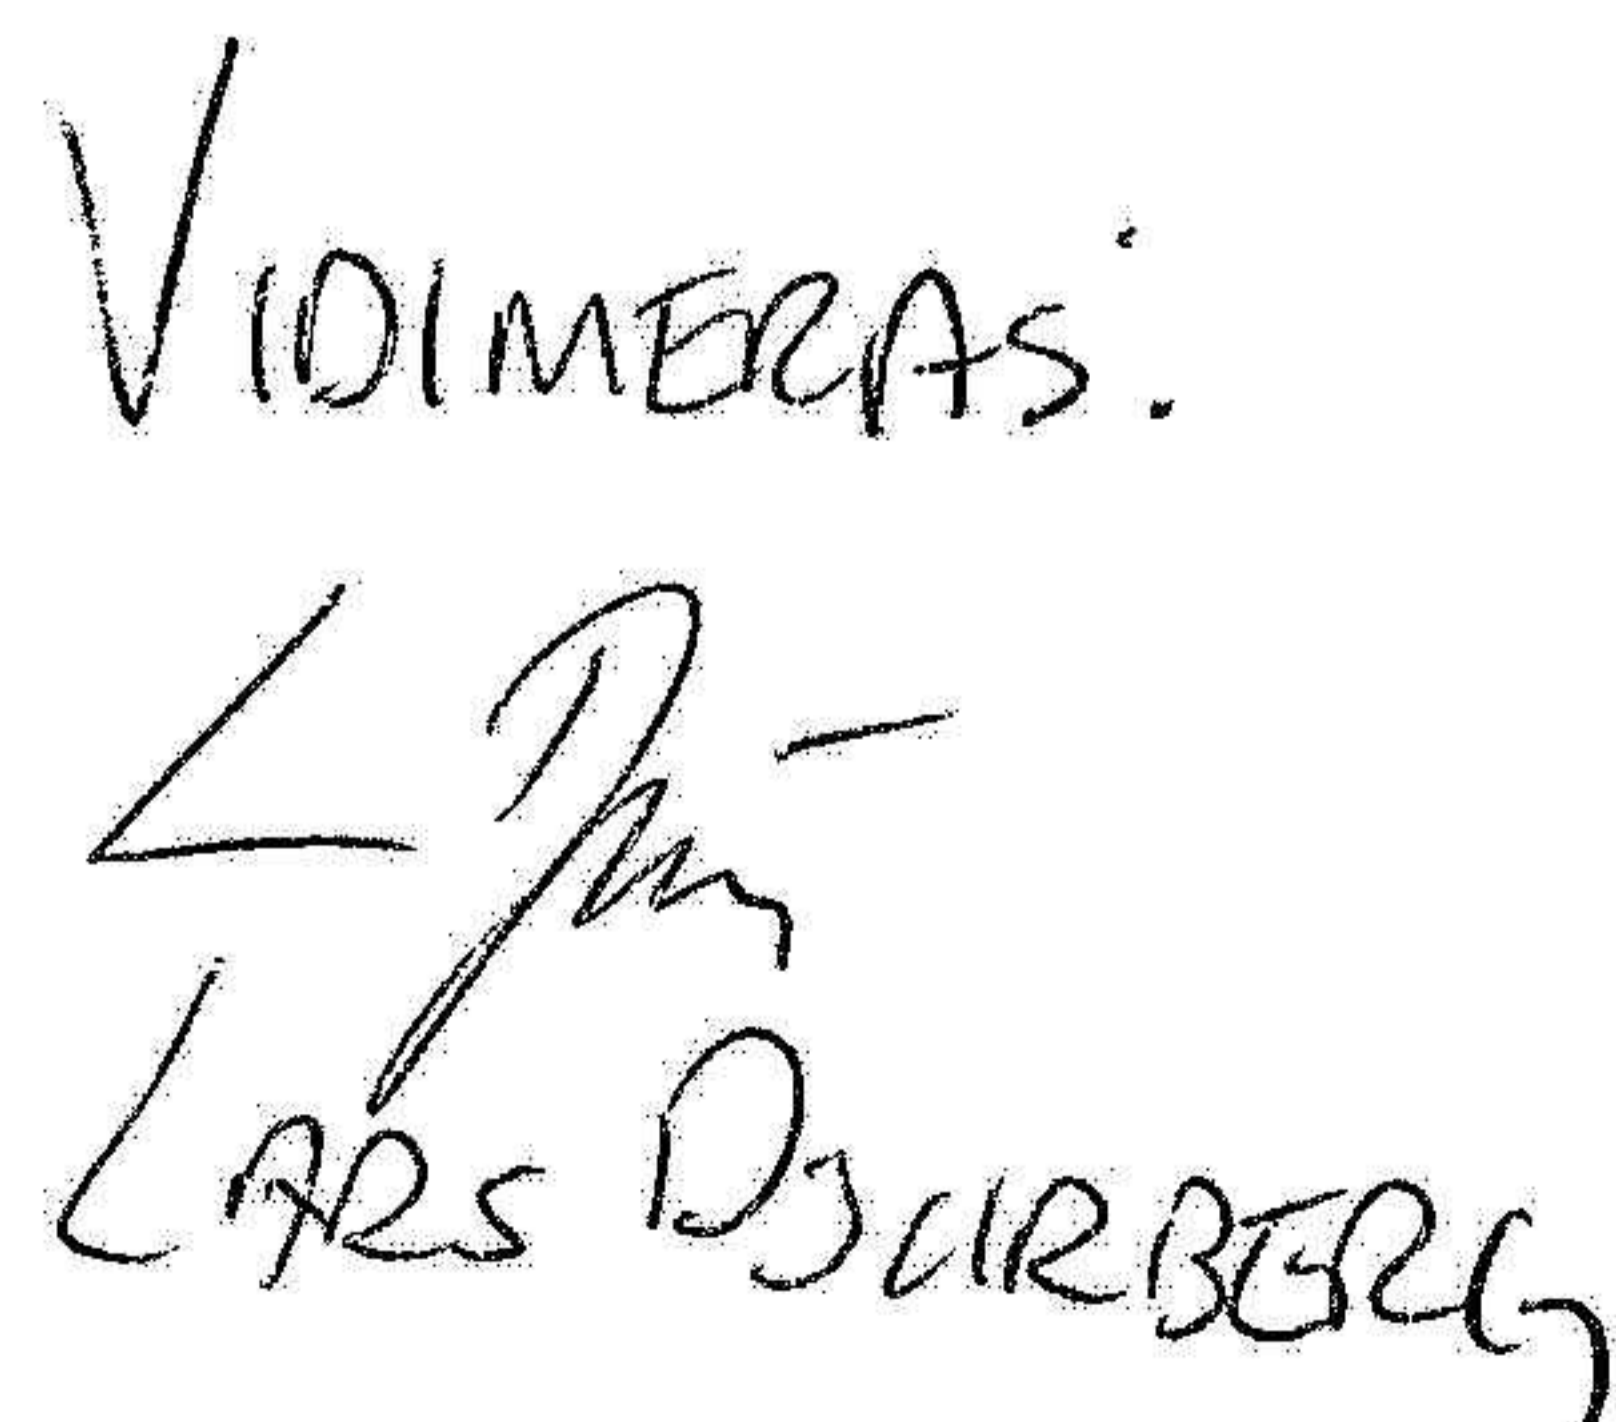 VIDIMERAS:
LARS DJURBERG